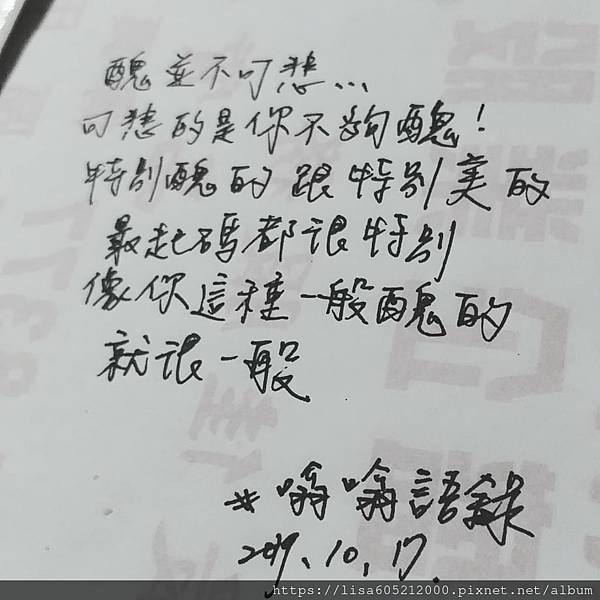 醜並不可悲...
可悲的是你不夠醜!
特別醜的跟特別美的
最起碼都很特別
像你這種一般醜的
就很一般
#嗡嗡語錄
2019.10.17.
https://lisa605212000.pixnet.net/album